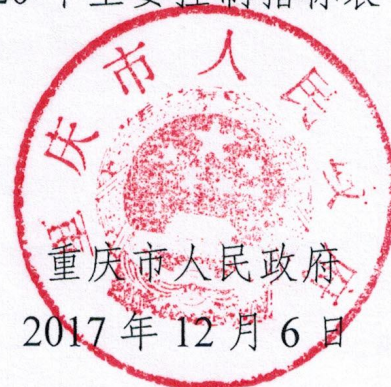 年主要控制指标表
重庆市人民政府
重庆市人民政府
2017 年 12 月 6 日